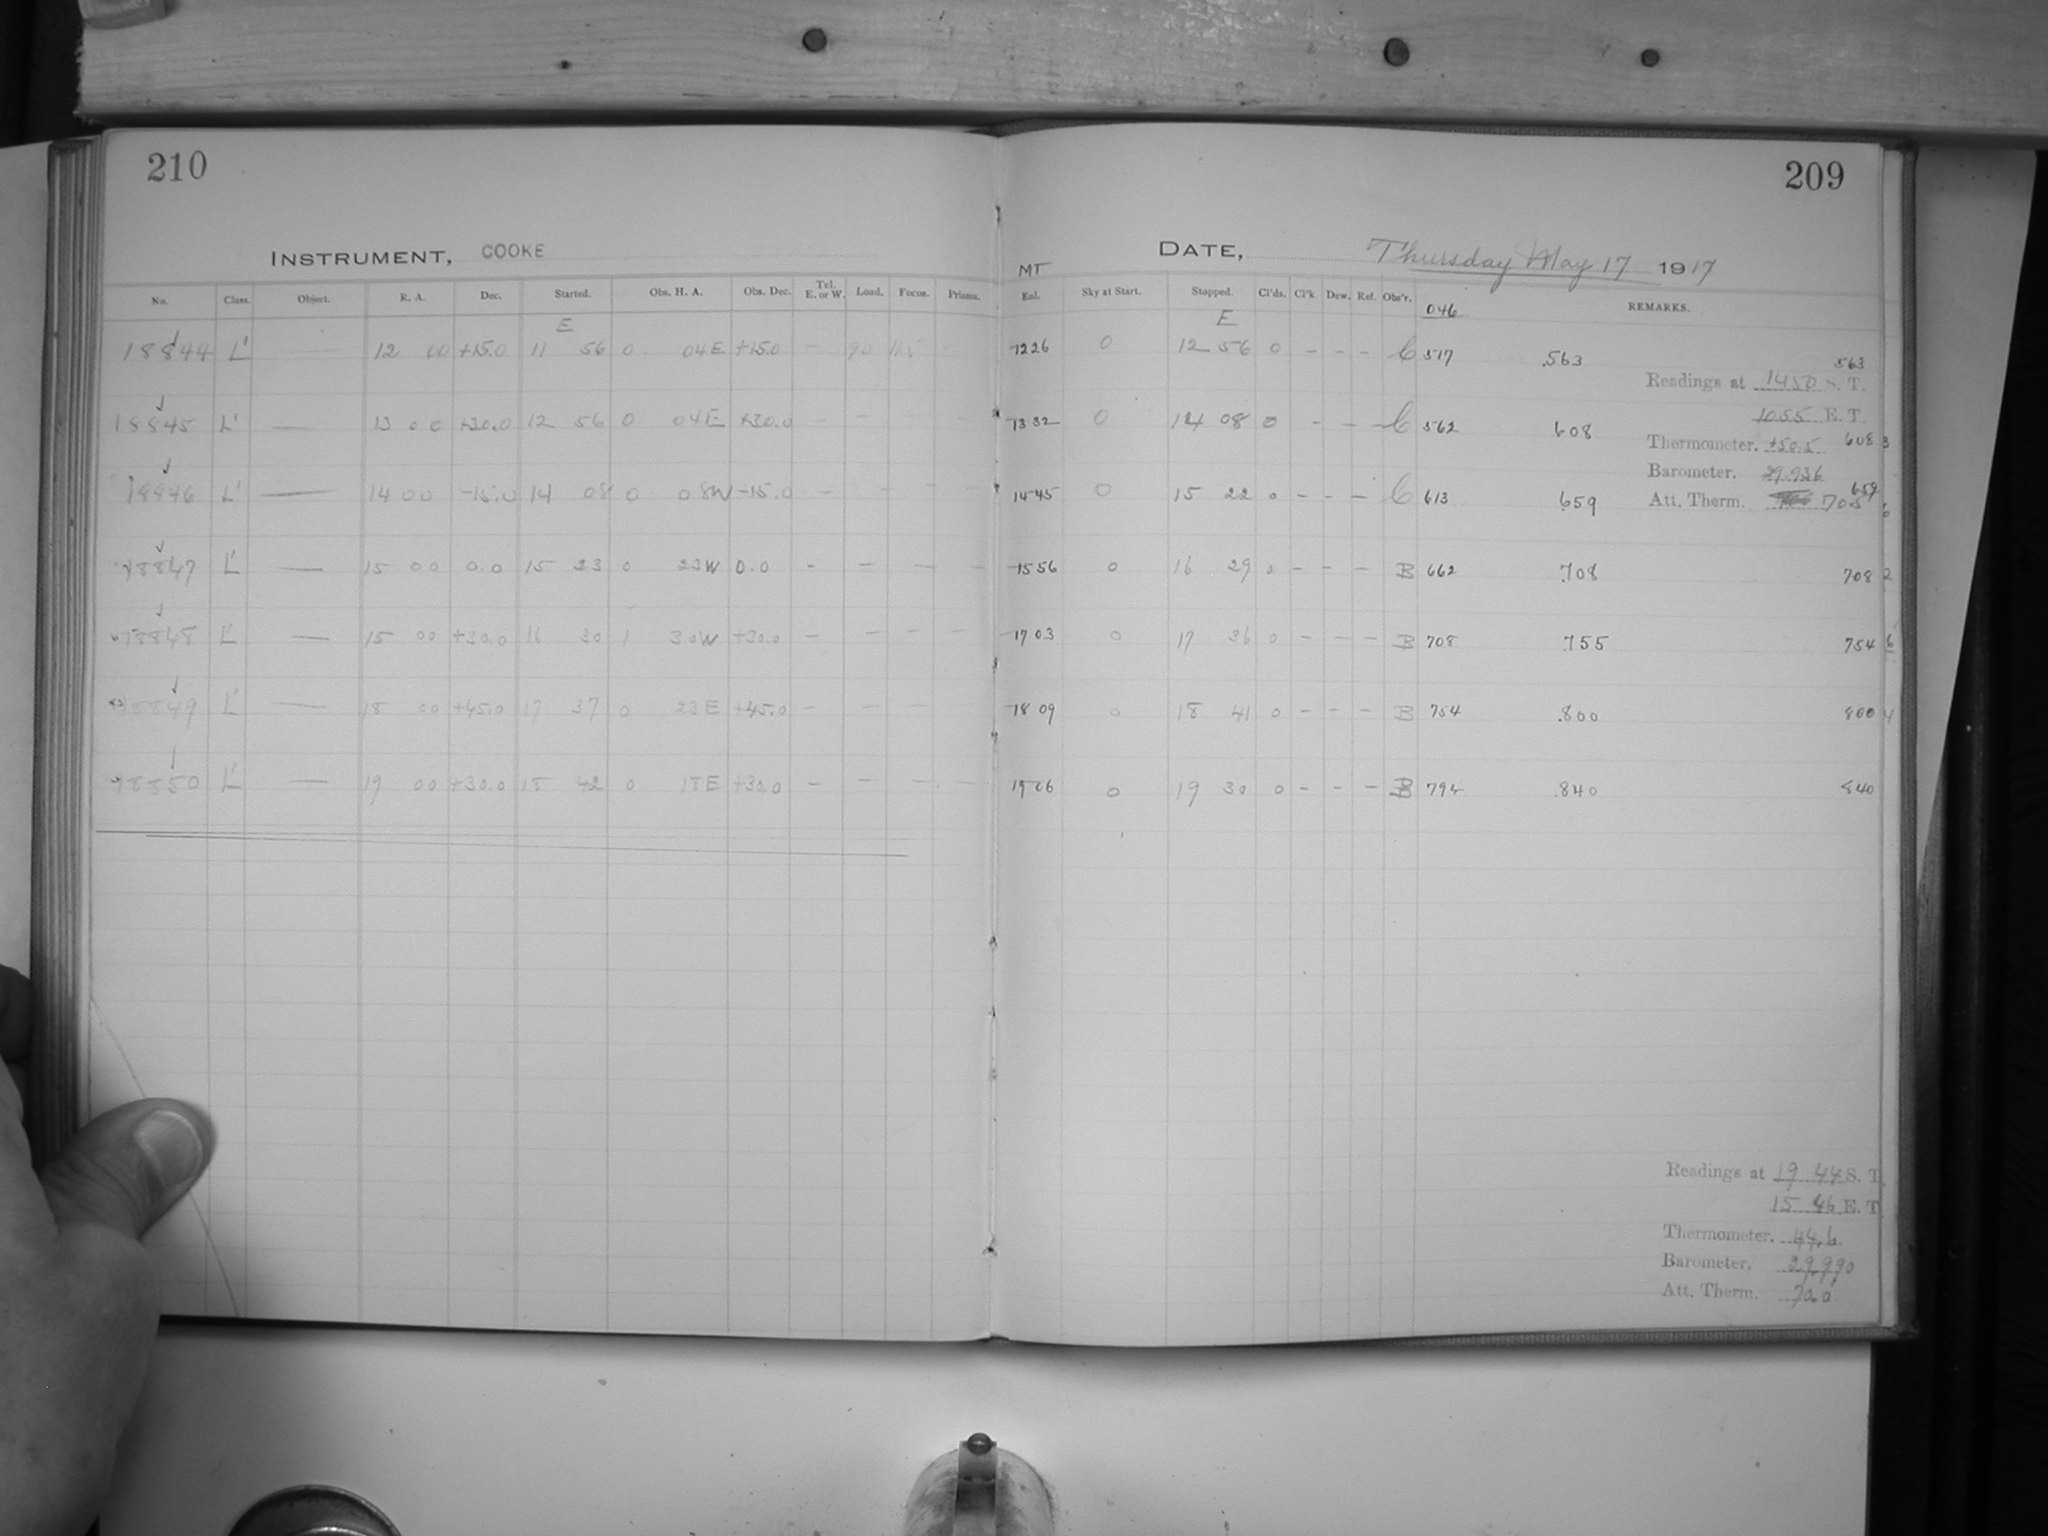 210
INSTRUMENT, COOKE
No. Class. Object. R. A. Dec. Started. Obs. H. A. Obs. Dec. Tel. E. or W. Load. Focus. Prisms.
E
18844 L' — 12 00 +15.0 11 56 0 04E +15.0 — 90 11.5 —
18845 L' — 13 00 +30.0 12 56 0 04E +30.0 — — — —
18846 L' — 14 00 -15.0 14 08 0 08W -15.0 — — — —
18847 L' — 15 00 0.0 15 23 0 23W 0.0 - — — —
18848 L' — 15 00 +30.0 16 30 1 30W +30.0 — — — —
18849 L' — 18 00 +45.0 17 37 0 23E +45.0 — — — —
18850 L' — 19 00 +30.0 18 42 0 18E +30.0 — — — —
209
DATE, Thursday May 17 1917
MT
Ent. Sky at Start. Stopped. Cl'ds. Cl'k. Dew. Ref. Obs'r. 046 REMARKS.
E
1226 0 12 56 0 - - - C 517 .563 563
Readings at 1450 S. T.
1055 E. T.
1332 0 14 08 0 - - - C 562 608 608 3
Thermometer. +50.5
Barometer. 29.936
1445 0 15 22 0 - - - C 613 659 659 6
Att. Therm. 70.5
1556 0 16 29 0 - - - B 662 .708 708 2
1703 0 17 36 0 - - - B 708 .755 754 6
1809 0 18 41 0 - - - B 754 .800 800 4
1906 0 19 30 0 - - - B 794 .840 840
Readings at 19 44 S. T.
15 46 E. T.
Thermometer. 44.6
Barometer. 29.990
Att. Therm. 70.0